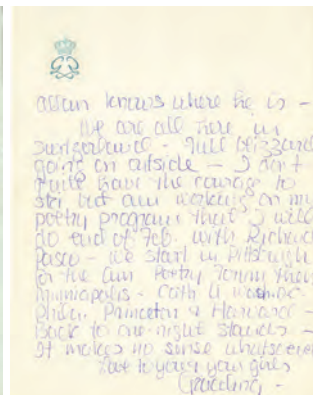 knows where he is -
We are all here in
Switzerland - full blizzard
going on outside - I don't
quite have the courage to
ski but am working on my
poetry program that I will
do end of Feb. with Richard
Pasco - we start in Pittsburgh
for the Am Poetry
- Cath U Washing.
Princeton & Harvard -
Back to one-night stands -
It makes no sense whatsoever
love to you & your girls